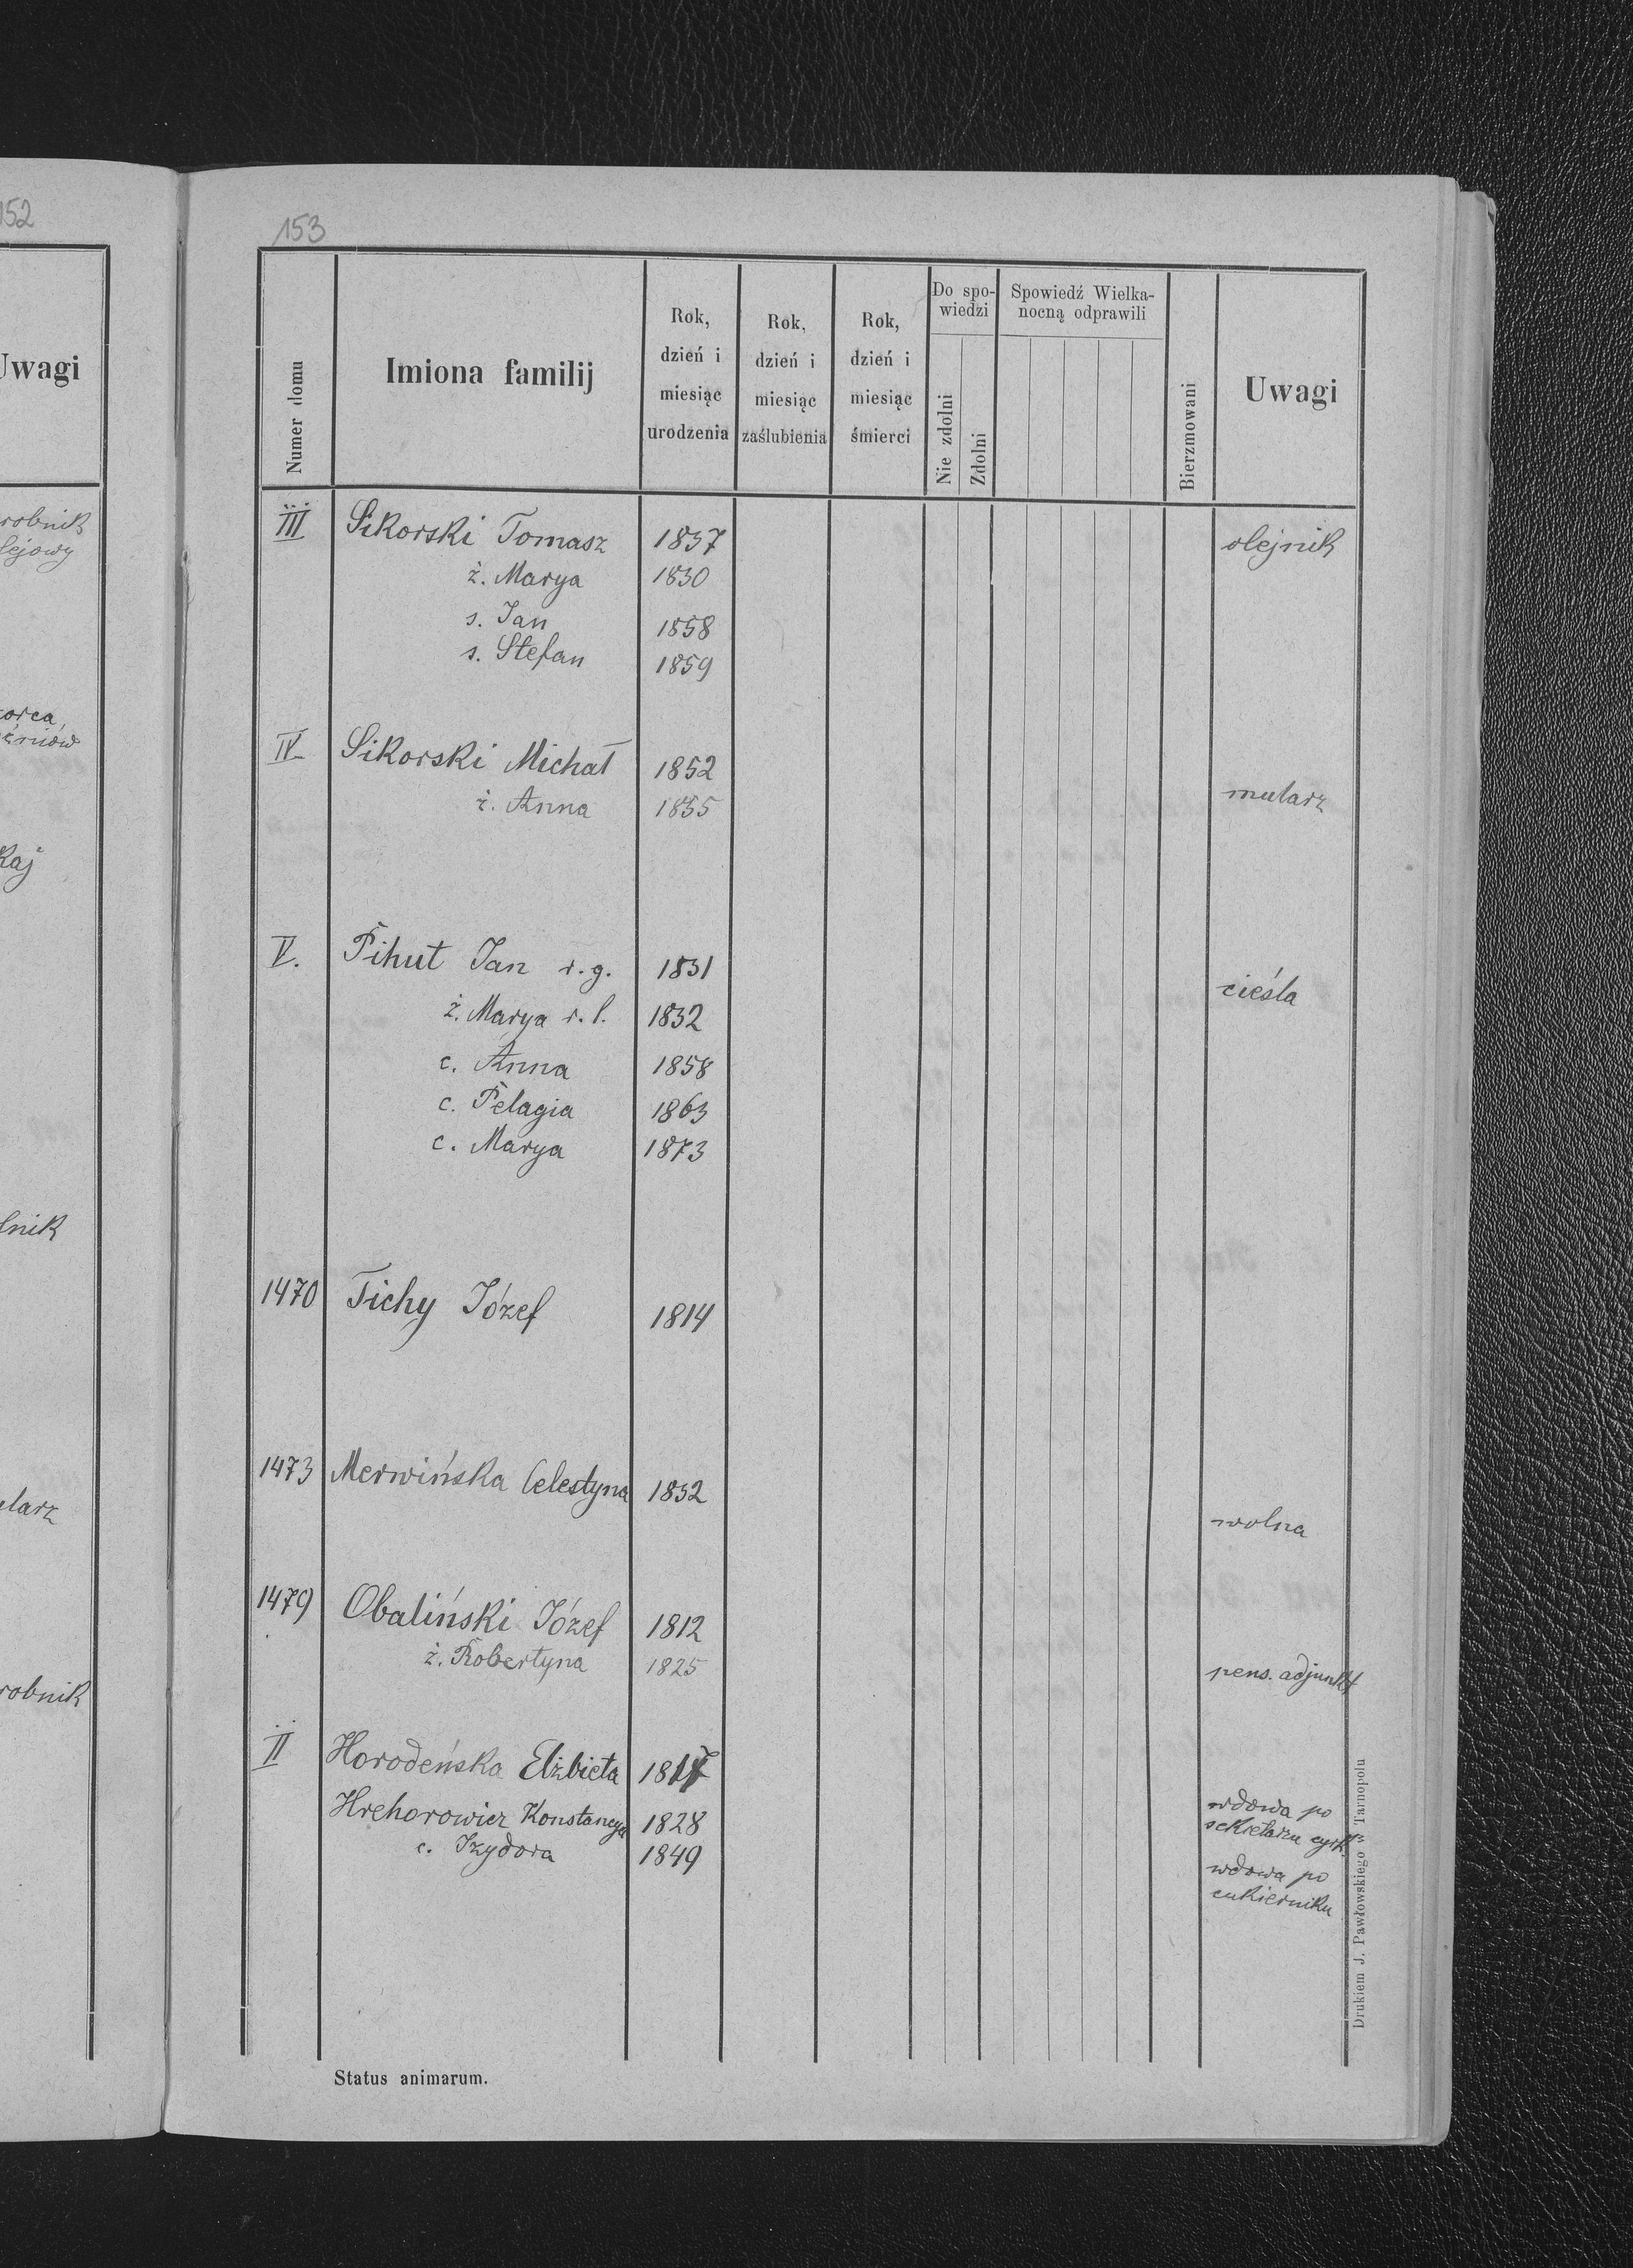 152
Uwagi
robnik
lejowy
Kaj
lnik
larz
robnik
153
Numer domu
Imiona familij
Rok, dzień i miesiąc urodzenia
Rok, dzień i miesiąc zaślubienia
Rok, dzień i miesiąc śmierci
Do spo-
wiedzi
Nie zdolni
Zdolni
Spowiedź Wielka-
nocną odprawili
Bierzmowani
Uwagi
III Sikorski Tomasz 1837 olejnik
ż. Marya 1830
s. Jan 1858
s. Stefan 1859
IV. Sikorski Michał 1852
ż. Anna 1855 mularz
V. Pihut Jan r.g. 1831 cieśla
ż. Marya r.l. 1832
c. Anna 1858
c. Pelagia 1863
c. Marya 1873
1470 Tichy Józef 1814
1473 Merwińska Celestyna 1852
wolna
1479 Obaliński Józef 1812
ż. Robertyna 1825 pens. adjunkt
II Horodeńska Elżbieta 1817
Hrehorowicz Konstancya 1828 wdowa po
sekretarzu cyrk.
c. Izydora 1849 wdowa po
cukierniku
Status animarum.
Drukiem J. Pawłowskiego w Tarnopolu